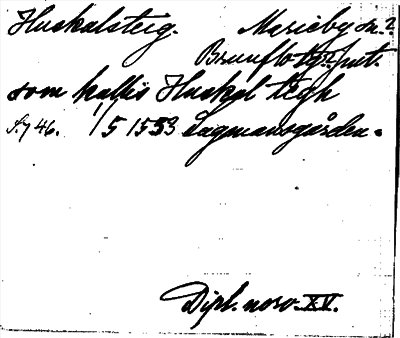 Huskalsteig. Marieby sn.?
Brunflo tg? Jmt.
som kallis Huskal tegh
S. 746. 1/5 1553 Lagmansgården.
Dipl. norv. XV.